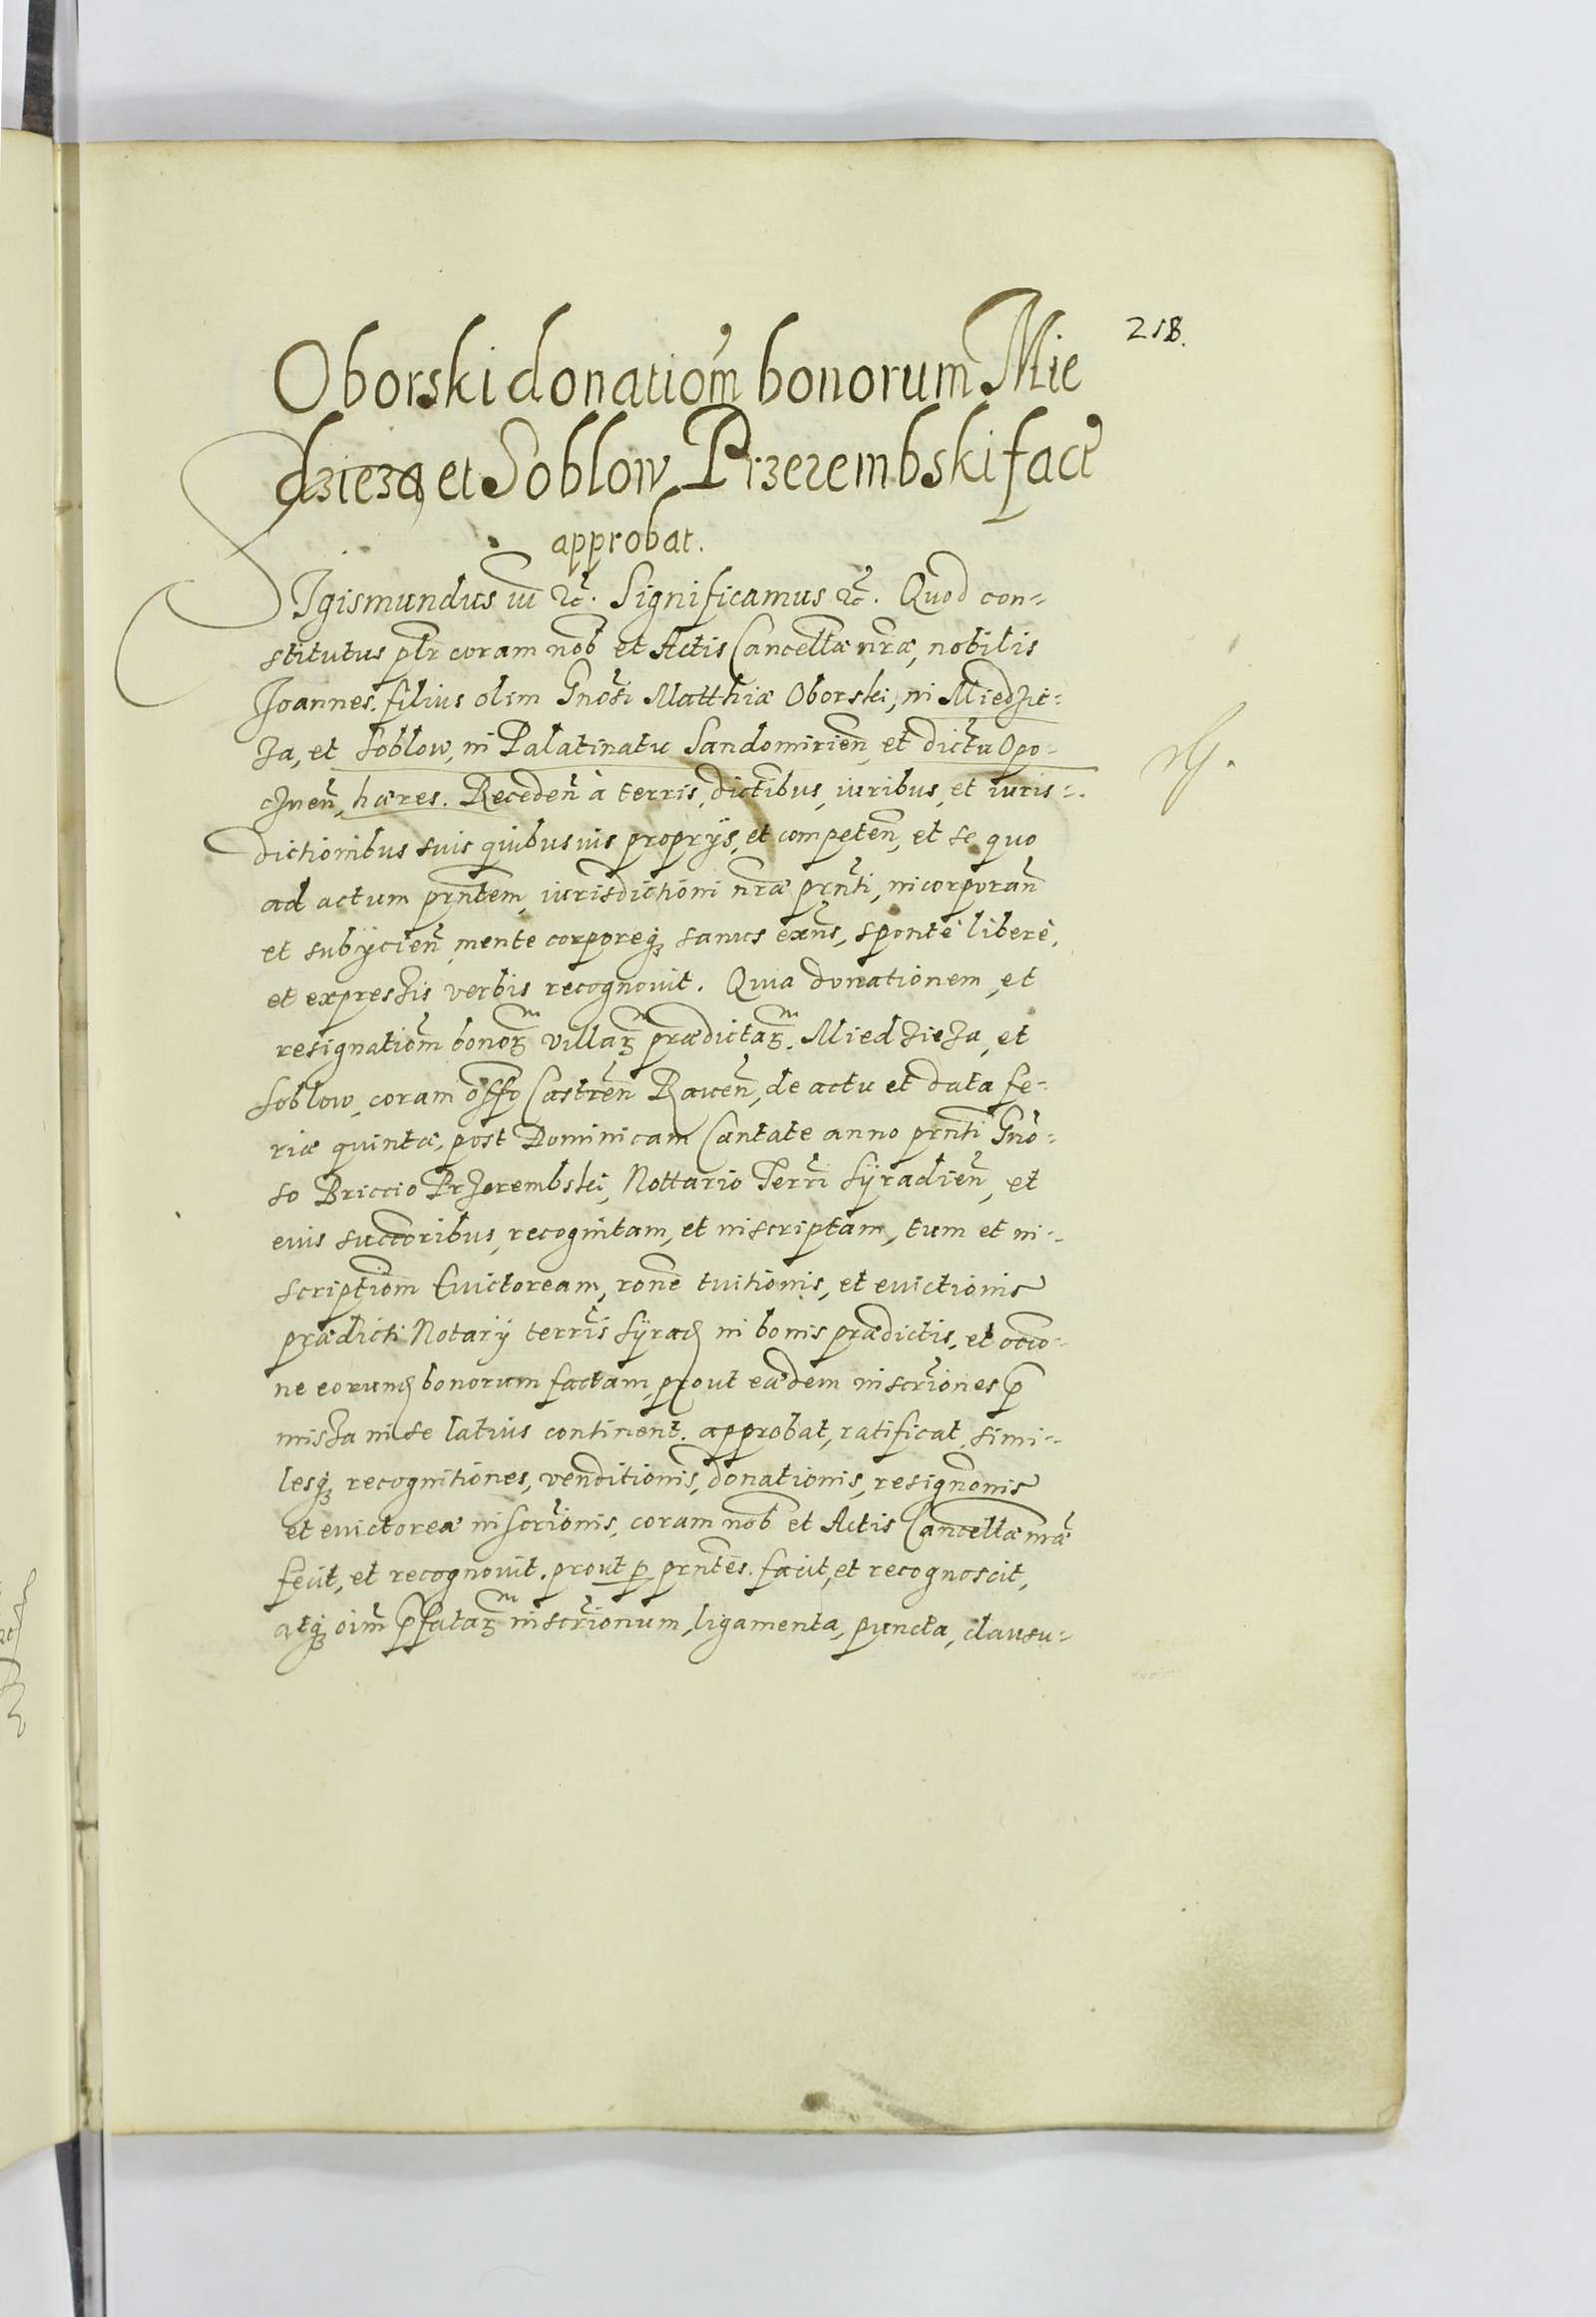 218.
Oborski donatiom̃ bonorum Mie
dzieza et Soblow Przerembski fact̃
approbat.
SIgismundus iii ꝛc̃. Significamus ꝛc̃. Quod con=
stitutus plr̃ coram nob̃ et Actis Cancellæ nr̃æ, nobilis
Joannes. filius olim Gnõsi Matthiæ Oborski, in Miedzie=
za, et Soblow, in Palatinatu Sandomirieñ, et dictu Opo=
czneñ, hæres. Recedeñ à terris, dictibus, iuribus, et iuris=
dictionibus suis quibusuis proprijs, et competeñ, et se quo
ad actum prñtem, iurisdictioni nr̃æ prñti, incorporañ
et subijcieñ, mente corporeqꝫ sanus exñs, sponte liberè,
et expressis verbis recognouit. Quia donationem, et
resignatiom̃ bonoꝝ villaꝝ prædictaꝝ. Miedzieza, et
Soblow, coram offo Castreñ Raueñ, de actu et data fe=
riæ quintæ, post Dominicam Cantate anno prñti Gnõ=
so Briccio Przerembski, Nottario Terr̃i Syradieñ, et
eius succoribus, recognitam, et inscriptam, tum et in=
scriptiom̃ Euictoream, rone tuitionis, et euictionis
prædicti Notarij terris̃ Syrad̃ in bonis prædictis, et occo=
ne eorund̃ bonorum factam, prout eædem inscriões p̃
missa in se latius continent. approbat, ratificat, simi=
lesqꝫ recognitiones, venditionis, donationis, resignonis
et euictoreæ inscriõnis, coram nob̃ et Actis Cancellæ nr̃æ
fecit, et recognouit. prout ꝑ prñtes. facit, et recognoscit,
atqꝫ oim̃ p̃fataꝝ inscriõnum, ligamenta, puncta, clausu=